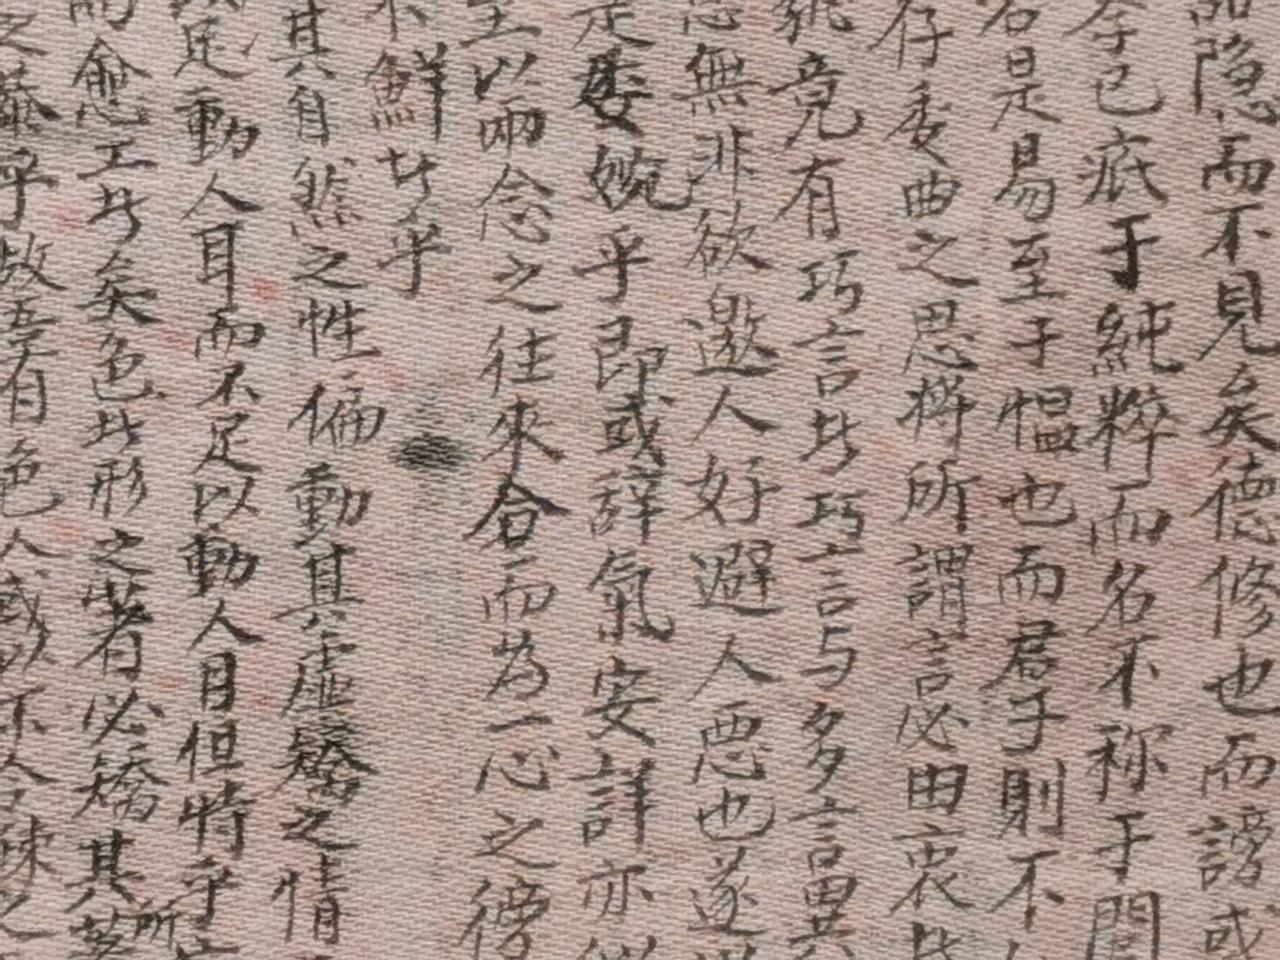 隐而不見矣德修也而謗或
幸已疵于純粹而名不称于閭
名是易至于愠也而君子則不
存委曲之思將所謂言必由衷此
竟有巧言此巧言与多言異
無非欲邀人好避人惡也遂
是委婉乎即或辞氣安詳亦
至以兩念之往來合而為一心之徬
不鮮此乎
其自然之性偏動其虚矯之情
足動人耳而不足以動人目但特乎
而愈工此矣色此形之著者必矯其
之 乎故吾有色人或以